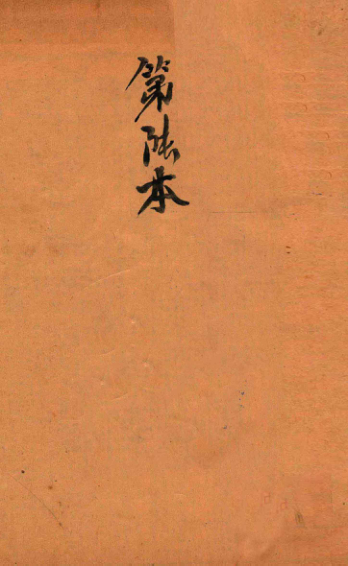 第陆本